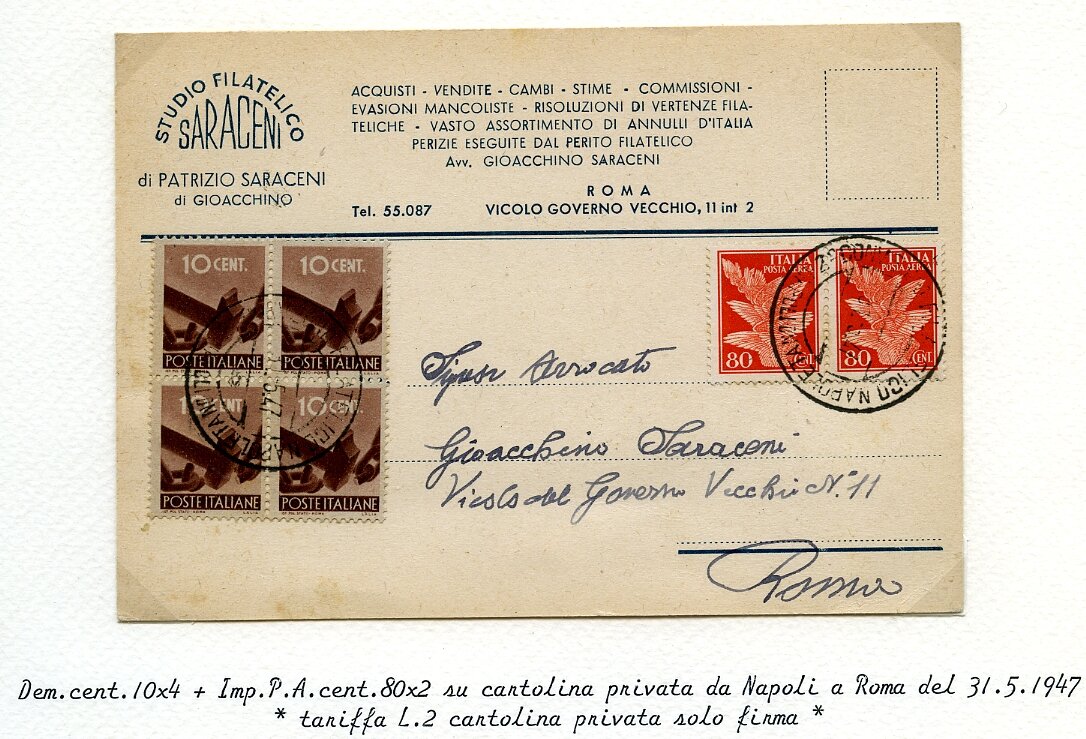 STUDIO FILATELICO
SARACENI
di PATRIZIO SARACENI
di GIOACCHINO
ACQUISTI - VENDITE - CAMBI - STIME - COMMISSIONI -
EVASIONI MANCOLISTE - RISOLUZIONI DI VERTENZE FILA-
TELICHE - VASTO ASSORTIMENTO DI ANNULLI D'ITALIA
PERIZIE ESEGUITE DAL PERITO FILATELICO
Avv. GIOACCHINO SARACENI
ROMA
Tel. 55.087 VICOLO GOVERNO VECCHIO, 11 int 2
10 CENT. 10 CENT.
POSTE ITALIANE POSTE ITALIANE
10 CENT. 10 CENT.
POSTE ITALIANE POSTE ITALIANE
ITALIA ITALIA
POSTA AEREA POSTA AEREA
80 80 CENT.
Signor Avvocato
Gioacchino Saraceni
Vicolo del Governo Vecchio N. 11
Roma
Dem.cent.10x4 + Imp.P.A.cent.80x2 su cartolina privata da Napoli a Roma del 31.5.1947
* tariffa L.2 cartolina privata solo firma *